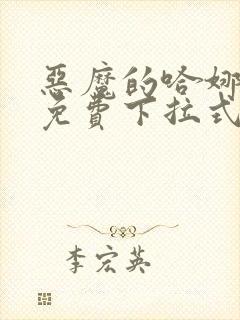 惡魔的哈娜
免費下拉式
李宏英